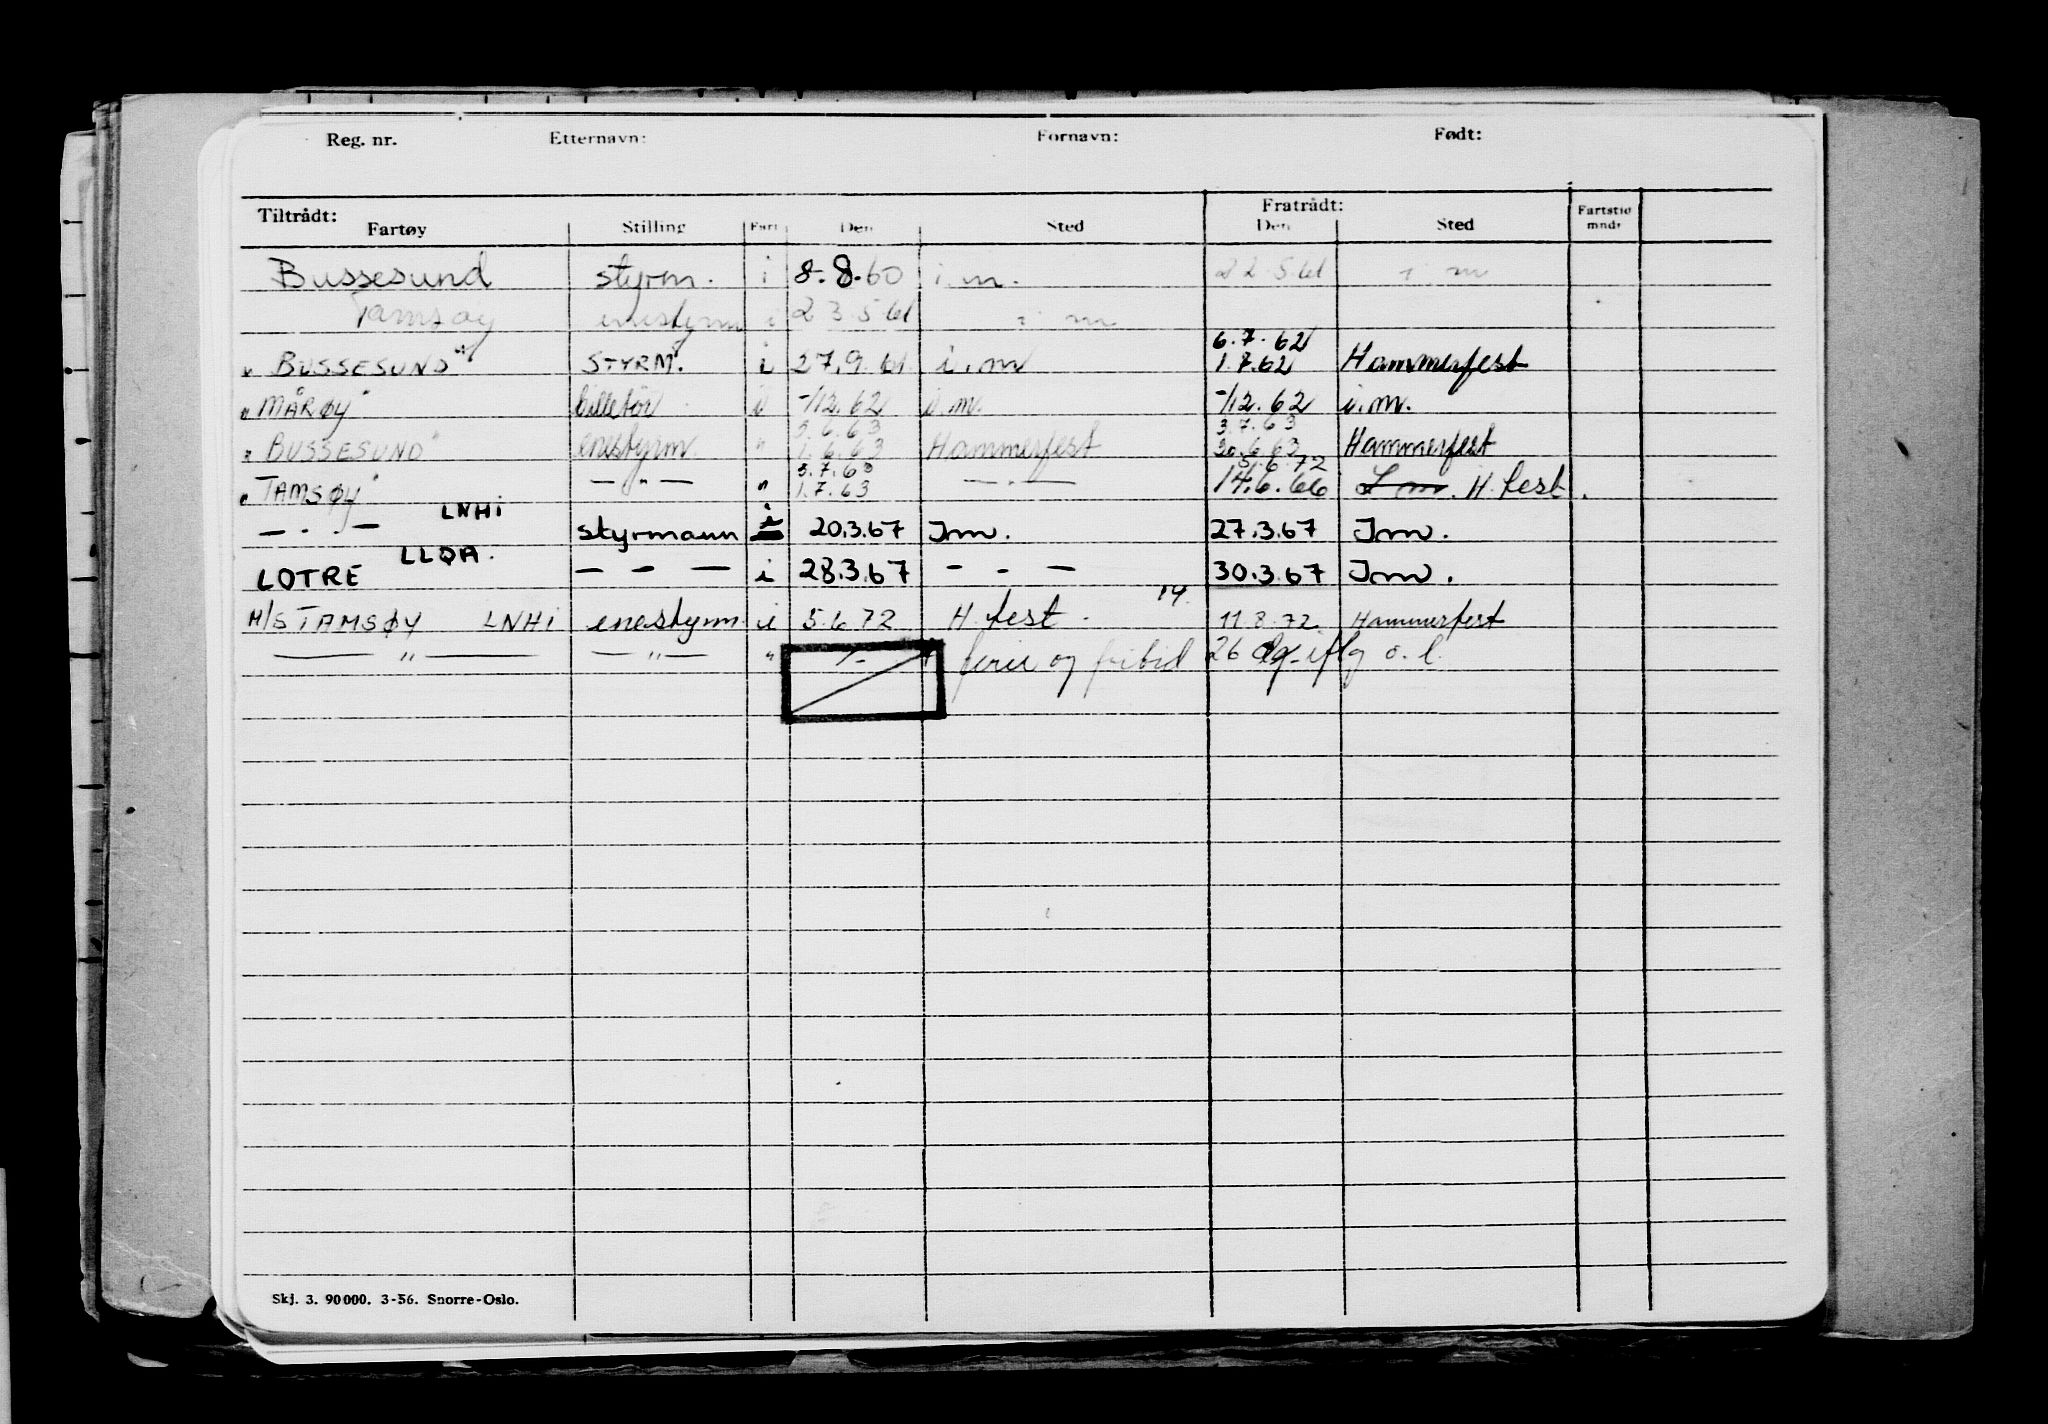 Reg. nr. Etternavn: Fornavn: Født:
Tiltrådt: Fratrådt:
Fartøy Stilling Fart Den Sted Den Sted Fartstid mndr
Bussesund styrm. i 8.8.60 i.m. 22.5.61 i m
Tamsøy enestyrm i 23.5.61 i m
6.7.62
"BUSSESUND" STYRM. i 27.9.61 i.m 1.7.62 Hammerfest
"MÅRØY" billetør i -/12.62 i.m. -/12.62 i.m.
5.6.63 3.7.63
"BUSSESUND" enestyrm. " 1.6.63 Hammerfest 30.6.63 Hammerfest
3.7.63 5.6.72
"TAMSØY" — " — " 1.7.63 — " — 14.6.66 I m. H. fest.
— " — LNHI styrmann i 20.3.67 Im. 27.3.67 Im.
LOTRE LLQA. — - — i 28.3.67 - - — 30.3.67 Im.
14.
M/S TAMSØY LNHI enestyrm. i 5.6.72 H. fest. 11.8.72 Hammerfest
— " — — " — " ferie og fritid 26 dg. iflg o.l.
Skj. 3. 90 000. 3-56. Snorre-Oslo.